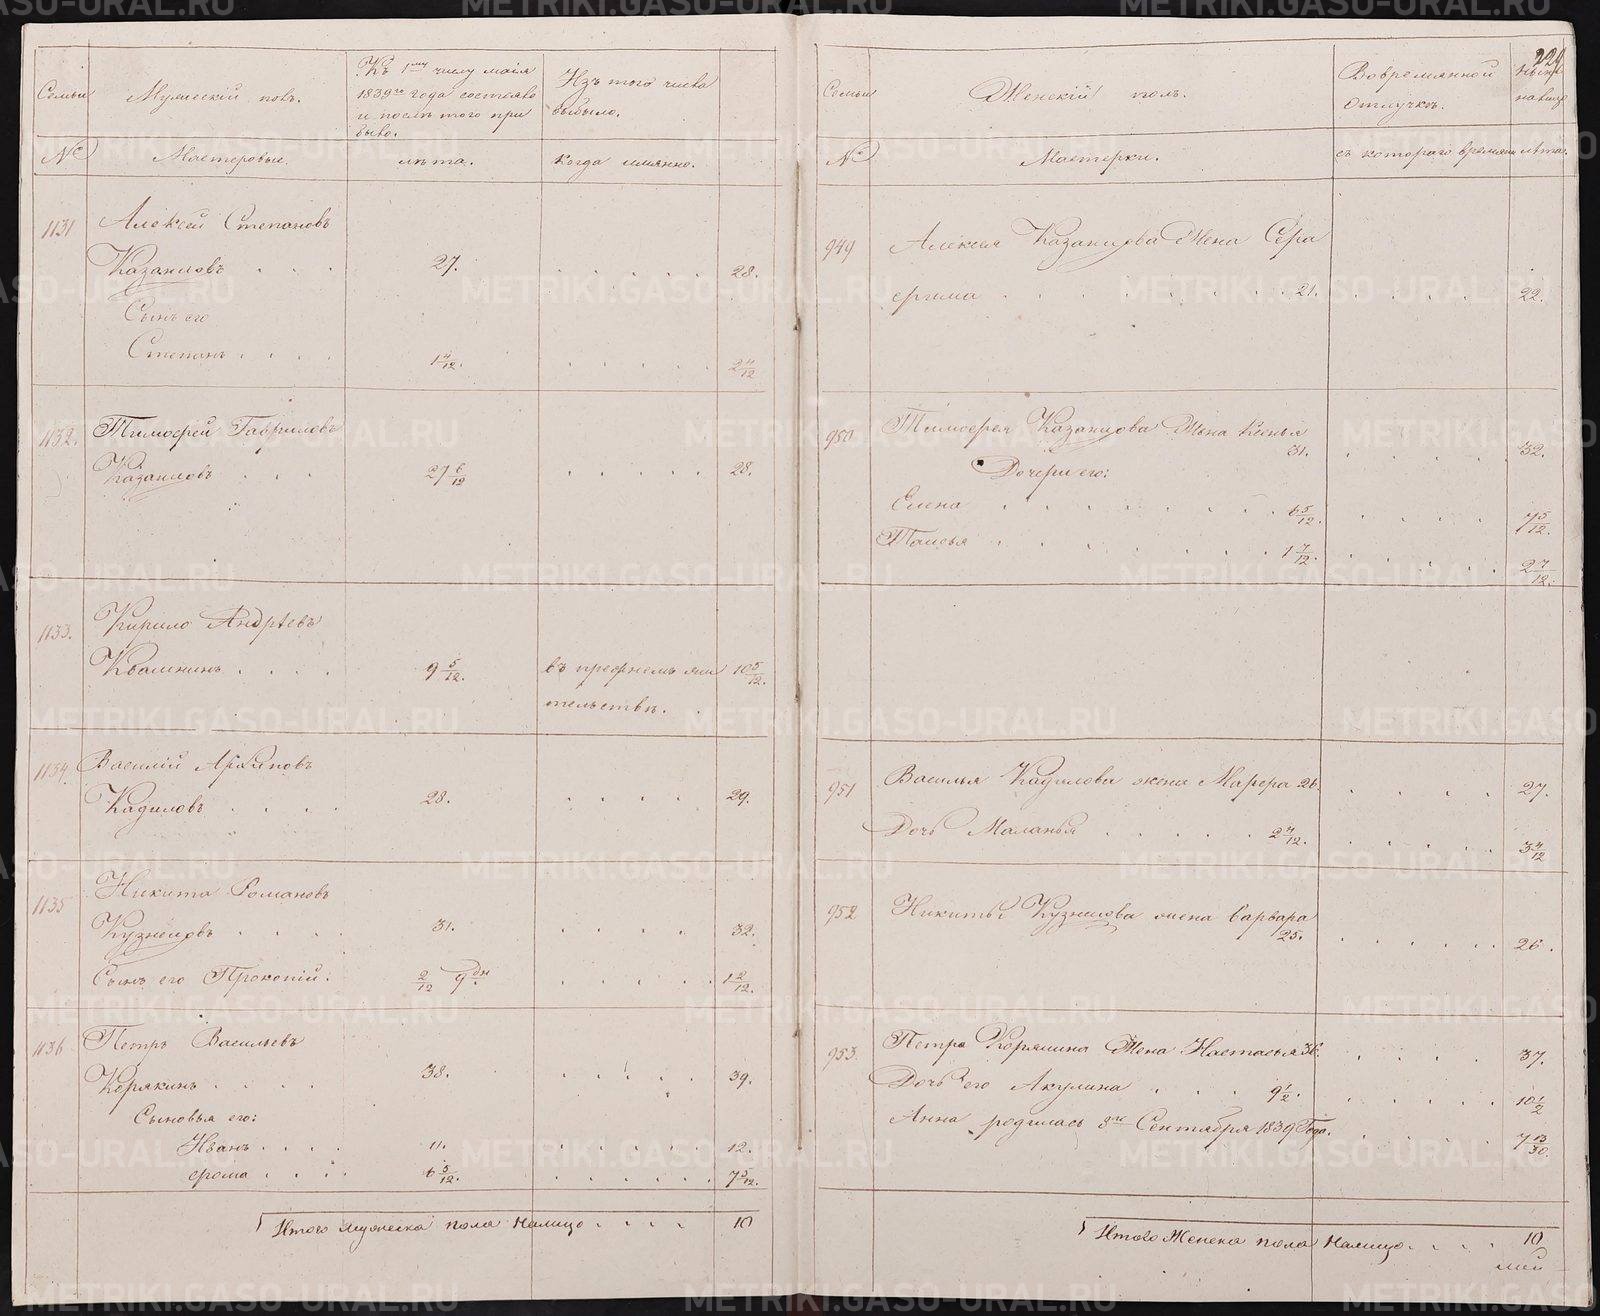 Семьи
Мужескій полъ.
Къ 1му числу маія
1839го года состояло
и послѣ того при
было.
Изъ того числа
выбыло.
№
Мастеровые.
лѣта.
когда имянно.
1131
Алексей Степановъ
Казанцовъ . . . 27. . . . . . 28.
Сынъ его
Степанъ . . . . 1 4/12. . . . . . 2 4/12
1132.
Тимофей Гавриловъ
Казанцовъ . . . 27 6/12 . . . . . 28.
1133.
Кирило Андрѣевъ
Квашнинъ . . . . 9 5/12. въ прежнемъ жи 10 5/12.
тельствѣ.
1134.
Василій Архиповъ
Кадиловъ . . . . 28. . . . . 29.
1135
Никита Романовъ
Кузнецовъ . . . . 31. . . . . 32.
Сынъ его Прокопій. 2/12 9 дн . . . . . 1 2/12.
1136
Петръ Васильевъ
Корякинъ . . . . 38. . . . . 39.
Сыновья его:
Иванъ . . . . 11. . . . . . 12.
Фома . . . . 6 5/12. . . . . . 7 5/12.
Итого мужеска пола налицо . . . . 10
229
Семьи
Женскій полъ.
Вовремянной
отлучкѣ.
Ныне
налицо
№
Мастерки.
съ котораго времяни
лѣта.
949
Алексея Казанцова Жена Сера
фима . . . . . . . . 21. . . . . 22.
950
Тимофея Казанцова Жена Ксенья
31. . . . . . 32.
Дочери его:
Елена . . . . . . . . 6 5/12. . . . . 7 5/12.
Таисья . . . . . . . . 1 7/12. . . . . . 2 7/12.
951
Василья Кадилова жена Марфа 26. . . . . 27.
Дочь Маланья . . . . . 2 4/12. . . . . . 3 4/12
952
Никиты Кузнецова жена Варвара
25. . . . . . 26.
953.
Петра Корякина Жена Настасья 36. . . . . 37.
Дочь его Акулина . . . . 9 1/2. . . . . . 10 1/2
Анна родилась 8го Сентября 1839 Года. . . . . . 7 13/30.
Итого Женска пола налицо. . . . 10